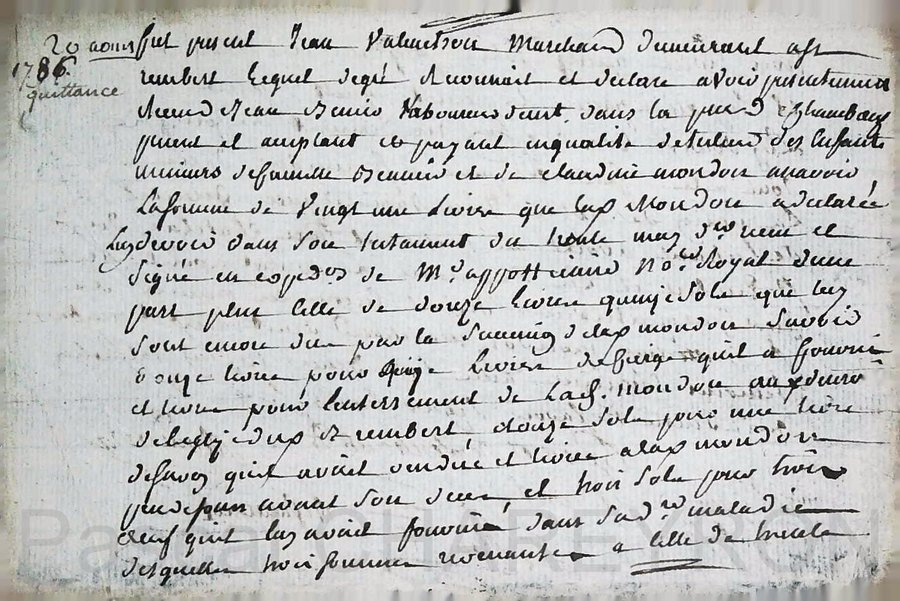 20 aoust fut present Jean Valmetson Marchand demeurant a St
1786.
quittance
rembert Lequel degré Reconnait et declare avoir presentement
Receu de Jean Laboureur dent. dans la
present et acceptant et payant enqualité de tuteur des Enfants
mineurs de feu et de claudine mondon assavoir
La somme de Vingt une Livres que lad. Mondon a declarée
Luy devoir dans son testament du trente may dernier et
signé en exped.on de M.d appottiaire No.re Royal d'une
part plus celle de douze livres quinze sols que luy
sont encore due par la de lad. mondon Savoir
douze livres pour quinze Livres de cierge qu'il a fourni
et livré pour l'enterrement de Lad. Mondon au
de St rembert, douze sols pour une livre
de savon qu'il avait vendue et livrée a lad. mondon
peu de jours avant son deces, et trois sols pour trois
oeuf qu'il luy avait fourni dans sa d.re maladie
desquelles trois sommes revenantes a celle de trente